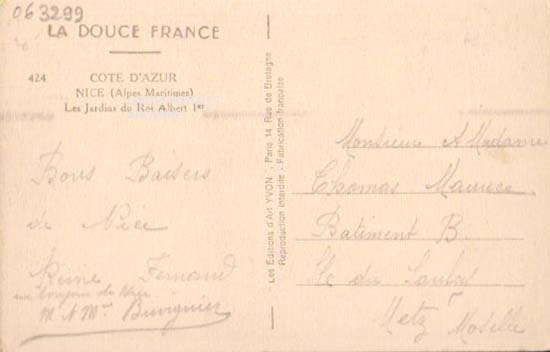 063299
LA DOUCE FRANCE
424 COTE D'AZUR
NICE (Alpes Maritimes)
Les Jardins du Roi Albert 1er
Les Editions d'Art YVON - Paris 14 Rue de Bretagne
Reproduction interdite - Fabrication française
Bons Baisers
de Nice
Reine Fernand
M & Mme
Monsieur & Madame
Thomas Maurice
Batiment B
du
Metz Moselle